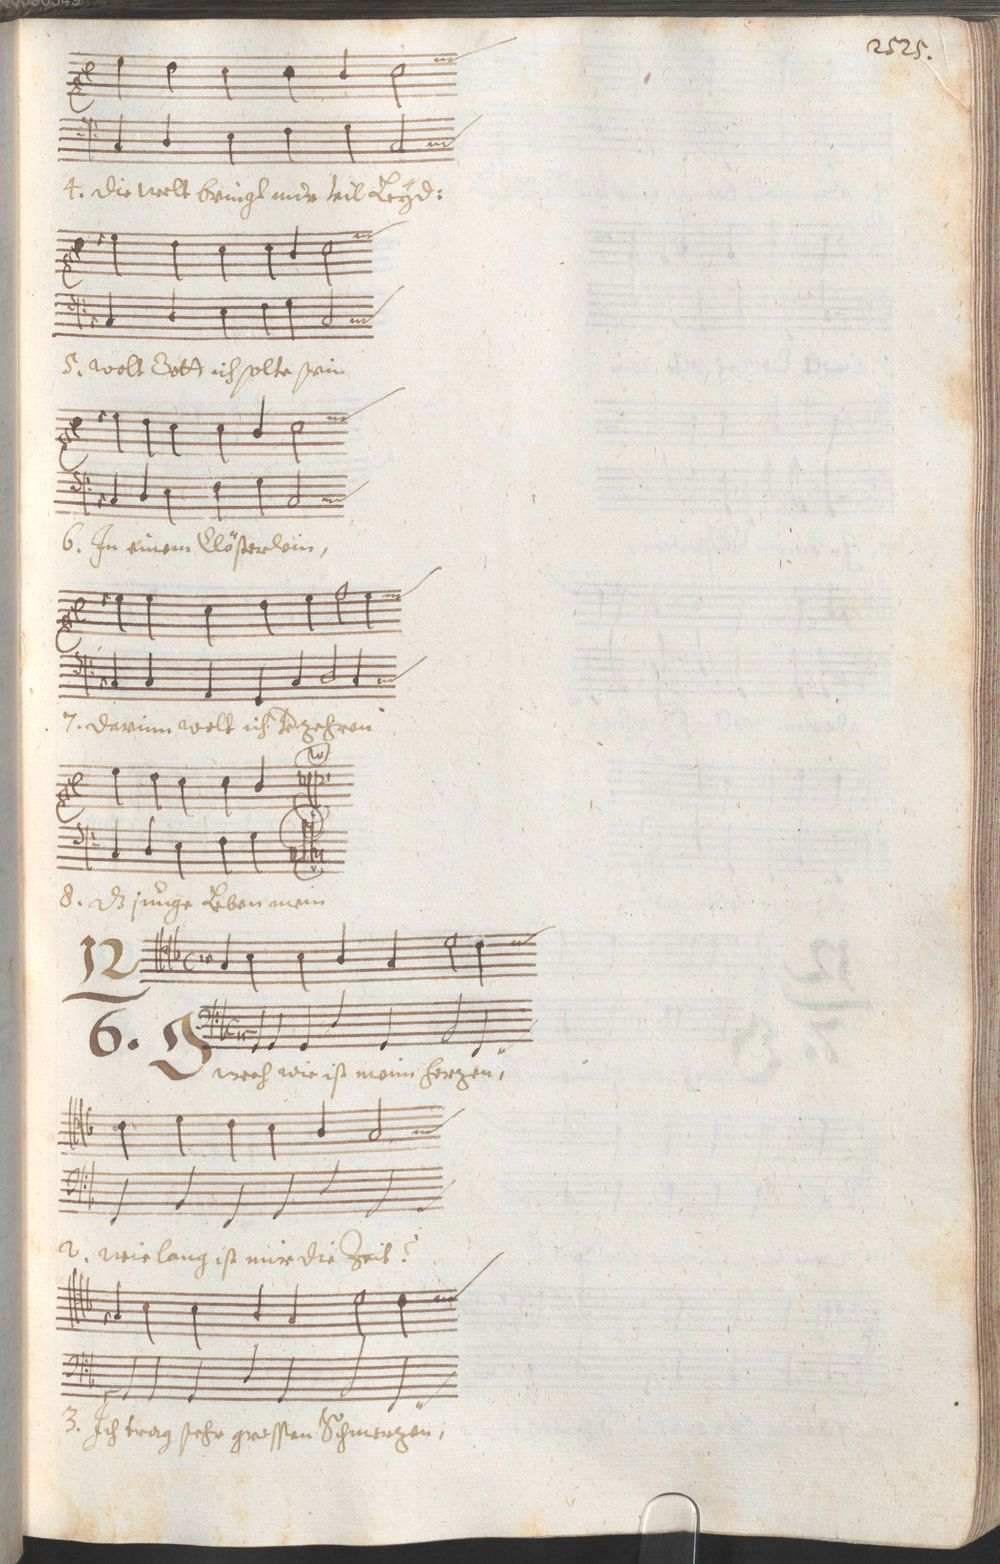 2525.
4. die welt bringt mir vil Leyd:
5. wolt Gott ich solte sein
6. In einem Clösterlein,
7. darinn wolt ich verzehren
8. dz junge Leben mein
12
6. O
weh wie ist meim herzen,
2. wie lang ist mir die Zeit?
3. Ich trag sehr grossen Schmerzen,